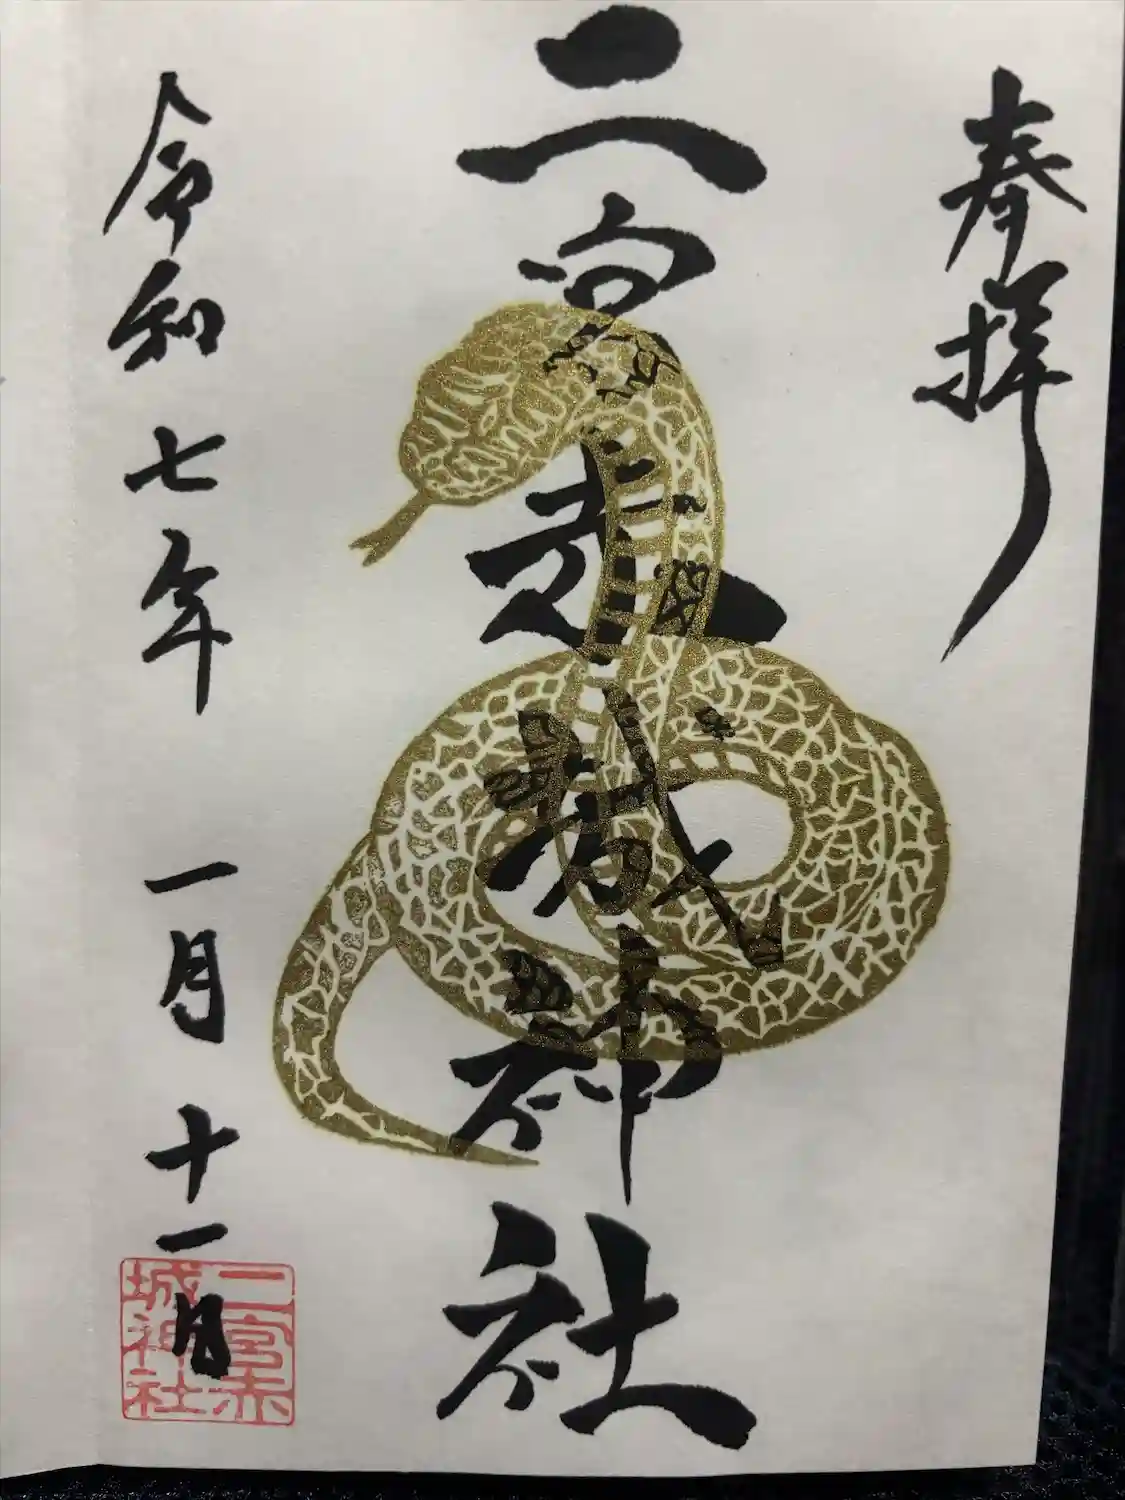 奉拝
二宮赤城神社
令和七年一月十一日
二宮赤
城神社